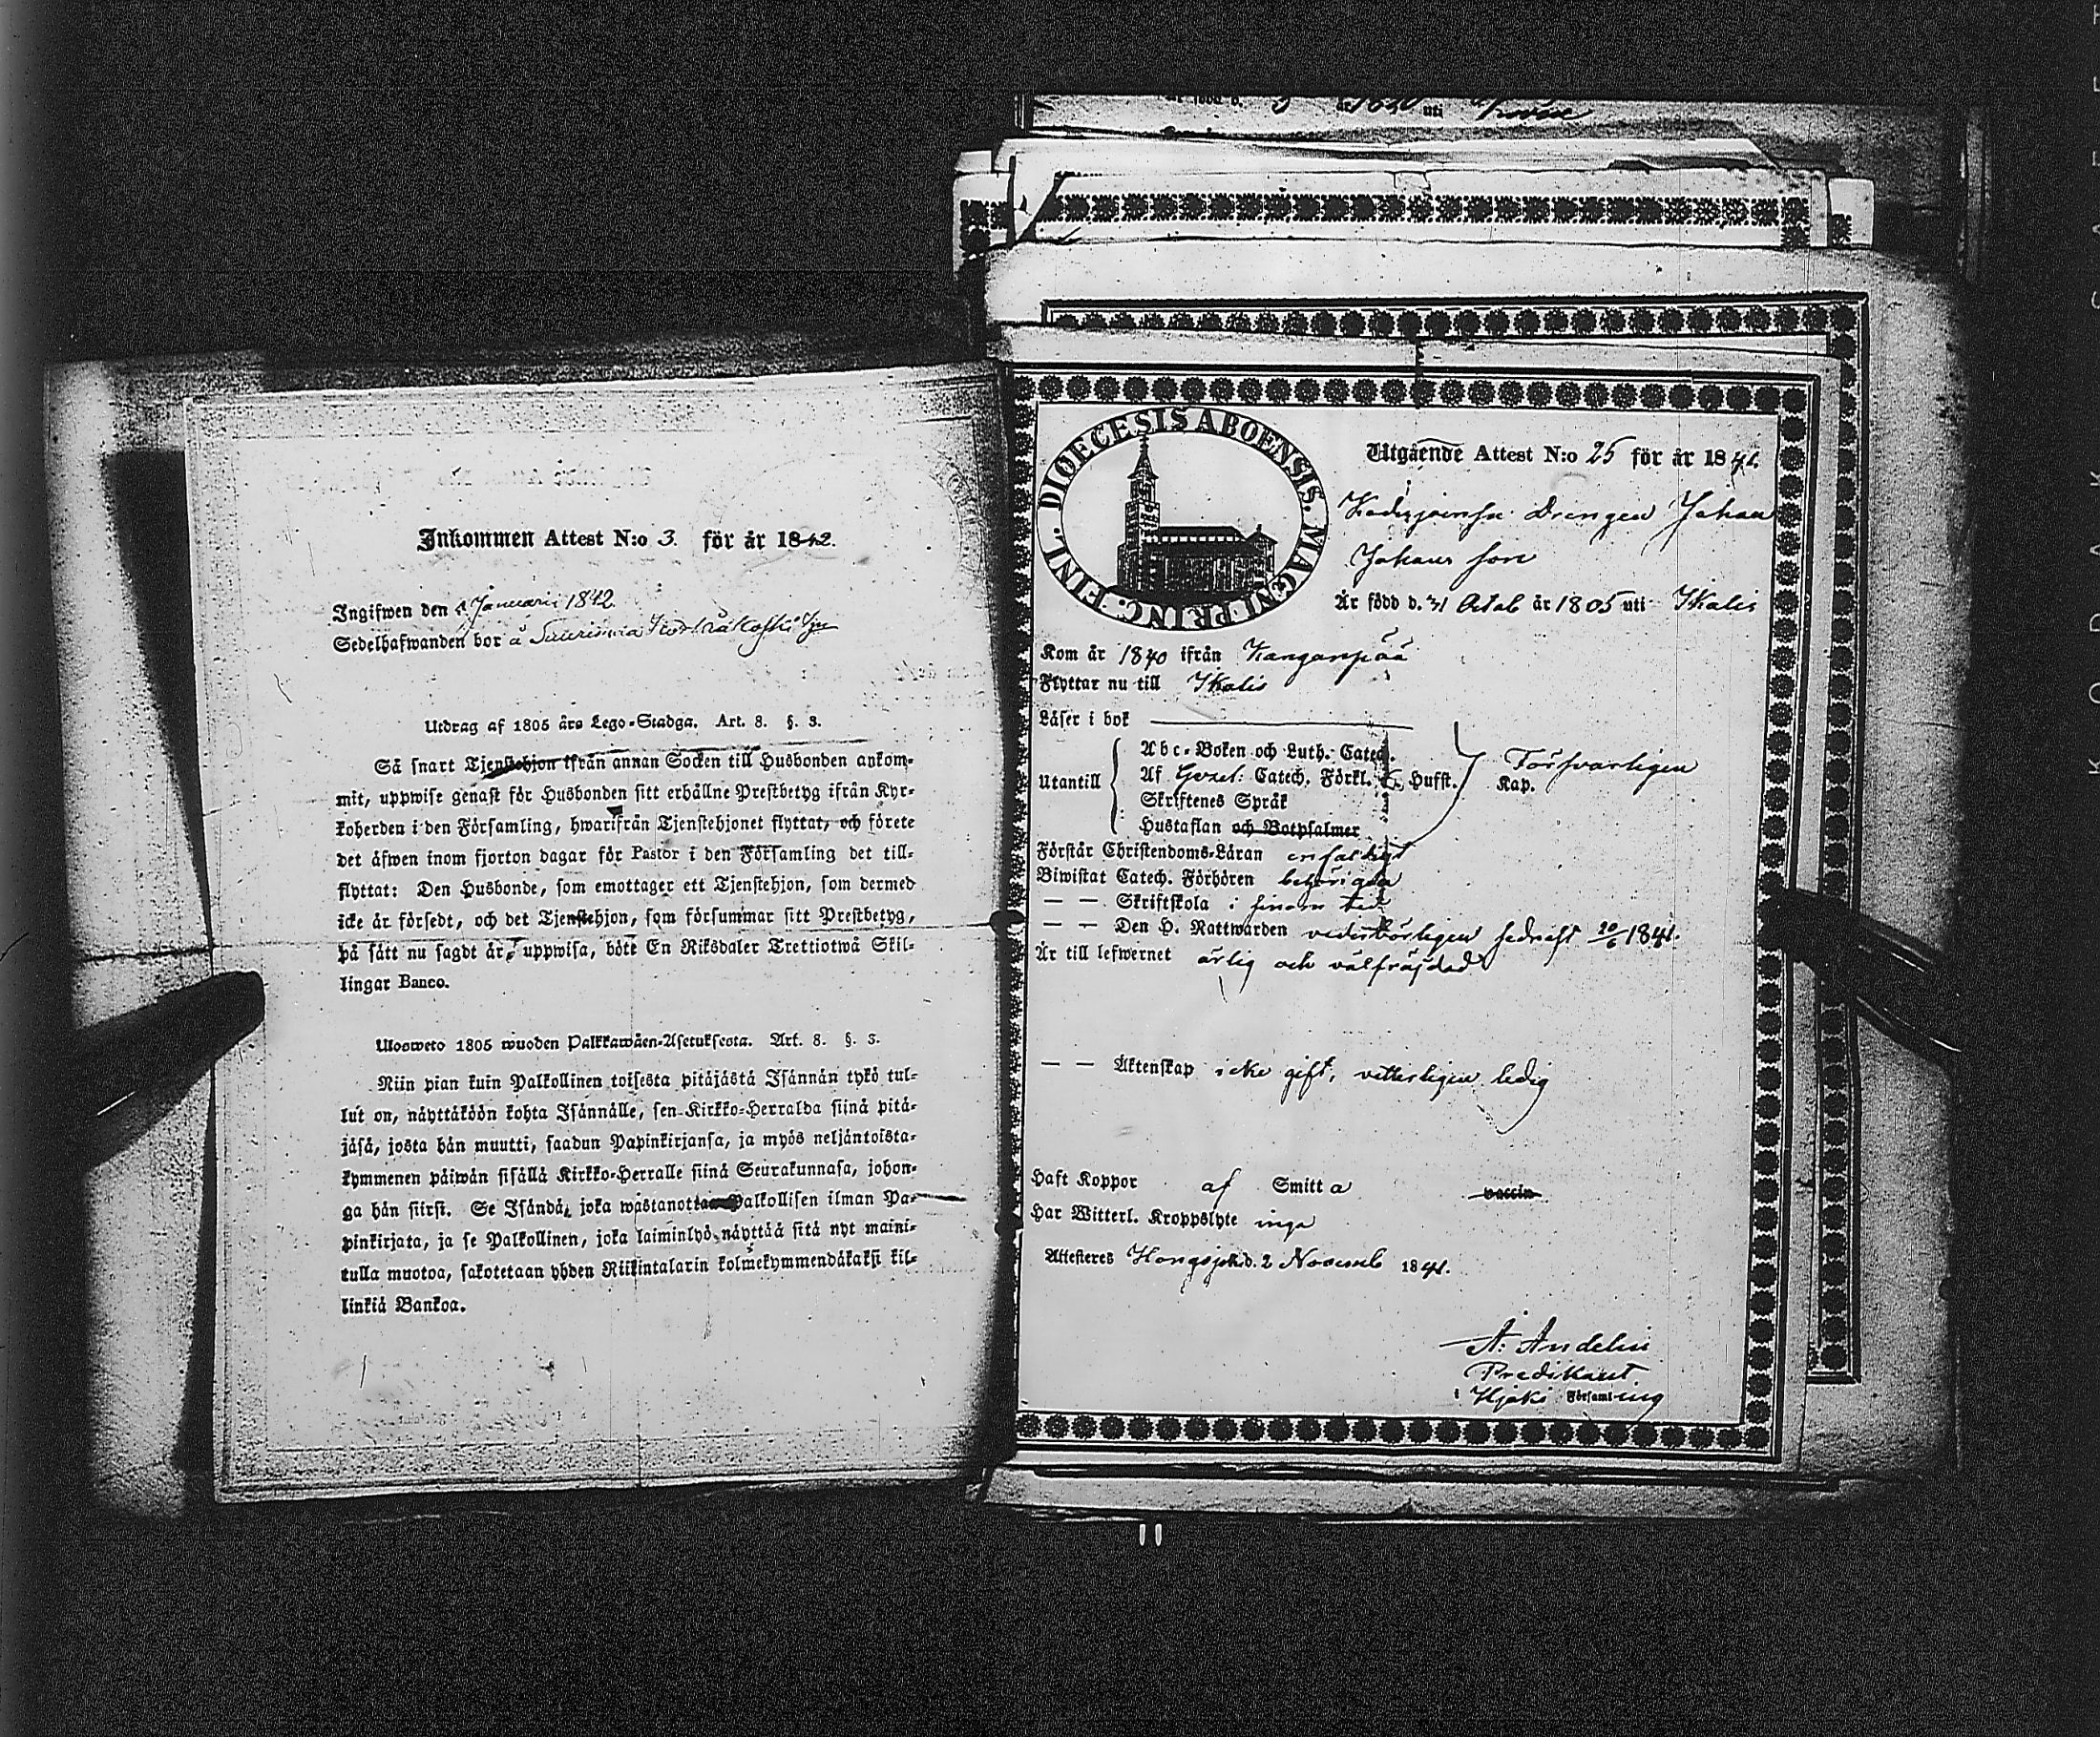 Inkommen Attest N:o 3. för år 1842.
Ingifwen den 2 Januarii 1842.
Sedelhafwanden bor å
Utdrag af 1805 års Lego-Stadga. Art. 8. §. 3.
Så snart Tjenstehjon ifrån annan Socken till Husbonden ankom-
mit, uppwise genast för Husbonden sitt erhållne Prestbetyg ifrån Kyr-
koherden i den Församling, hwarifrån Tjenstehjonet flyttat, och förete
det äfwen inom fjorton dagar för Pastor i den Församling det till-
flyttat: Den Husbonde, som emottager ett Tjenstehjon, som dermed
icke är försedt, och det Tjenstehjon, som försummar sitt Prestbetyg,
på sätt nu sagdt är, uppwisa, böte En Riksdaler Trettiotwå Skil-
lingar Banco.
Ulosweto 1805 wuoden Palkkawäen-Asetuksesta. Art. 8. §. 3.
Niin pian kuin Palkollinen toisesta pitäjästä Isännän tykö tul-
lut on, näyttäköön kohta Isännälle, sen Kirkko-Herralda siinä pitä-
jäsä, josta hän muutti, saadun Papinkirjansa, ja myös neljäntoista-
kymmenen päiwän sisällä Kirkko-Herralle siinä Seurakunnasa, johon-
ga hän siirsi. Se Isändä, joka wastanottaa Palkollisen ilman Pa-
pinkirjata, ja se Palkollinen, joka laiminlyö näyttää sitä nyt maini-
tulla muotoa, sakotetaan yhden Riikintalarin kolmekymmendäkaksi kil-
linkiä Bankoa.
är född d. 5 år 1820 uti
DIOECESIS ABOENSIS. MAGNI PRINC. FINL.
Utgående Attest N:o 25 för år 1841.
Drengen Johan
Johans son
Är född d. 31 Octob år 1805 uti Ikalis
Kom år 1840 ifrån Kanganpää
Flyttar nu till Ikalis
Läser i bok
Utantill
Abc-Boken och Luth. Catech.
Af Gezel: Catech. Förkl. Husst. Kap. Försvarligen
Skriftenes Språk
Hustaflan och Botpsalmer
Förstår Christendoms-Läran enfaldigt
Biwistat Catech. Förhören behörigen
— — Skriftskola i sinom tid
— — Den H. Nattwarden vederbörligen sednast 20/6 1841.
Är till lefwernet ärlig och välfräjdad
— — Äktenskap icke gift, vetterligen ledig
Haft Koppor af Smitta vaccin
Har Witterl. Kroppslyte inga
Attesteras Hongojoki d. 2 Novemb 1841.
A. Andelin
Predikant
i Hjoki Församling